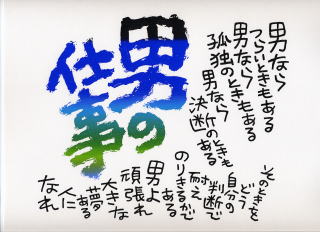 男の
仕事
男なら
つらいときもある
男なら
孤独のときもある
男なら
決断のあるときも
そのときを
どう
自分の
判断で
耐え
のりきるかで
ある
男よ
頑張れ
大きな
夢ある
人に
なれ